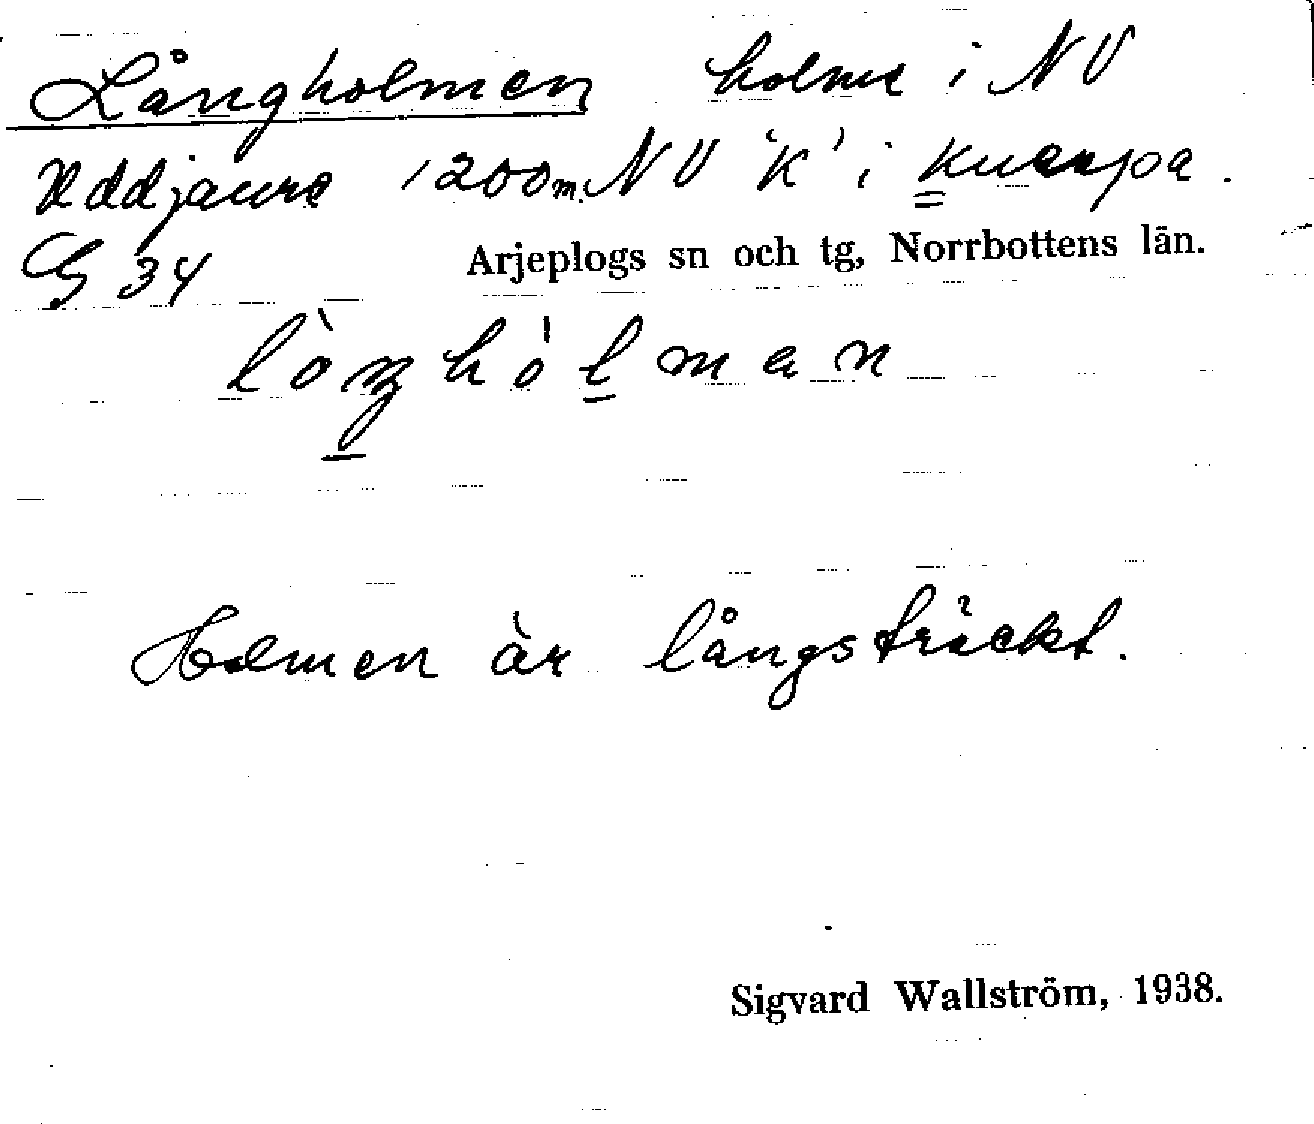 Långholmen holme i NV
Uddjaure 1200 m. NV 'K' i Kuerpa.
G 34 Arjeplogs sn och tg, Norrbottens län.
Holmen är långsträckt.
Sigvard Wallström, 1938.